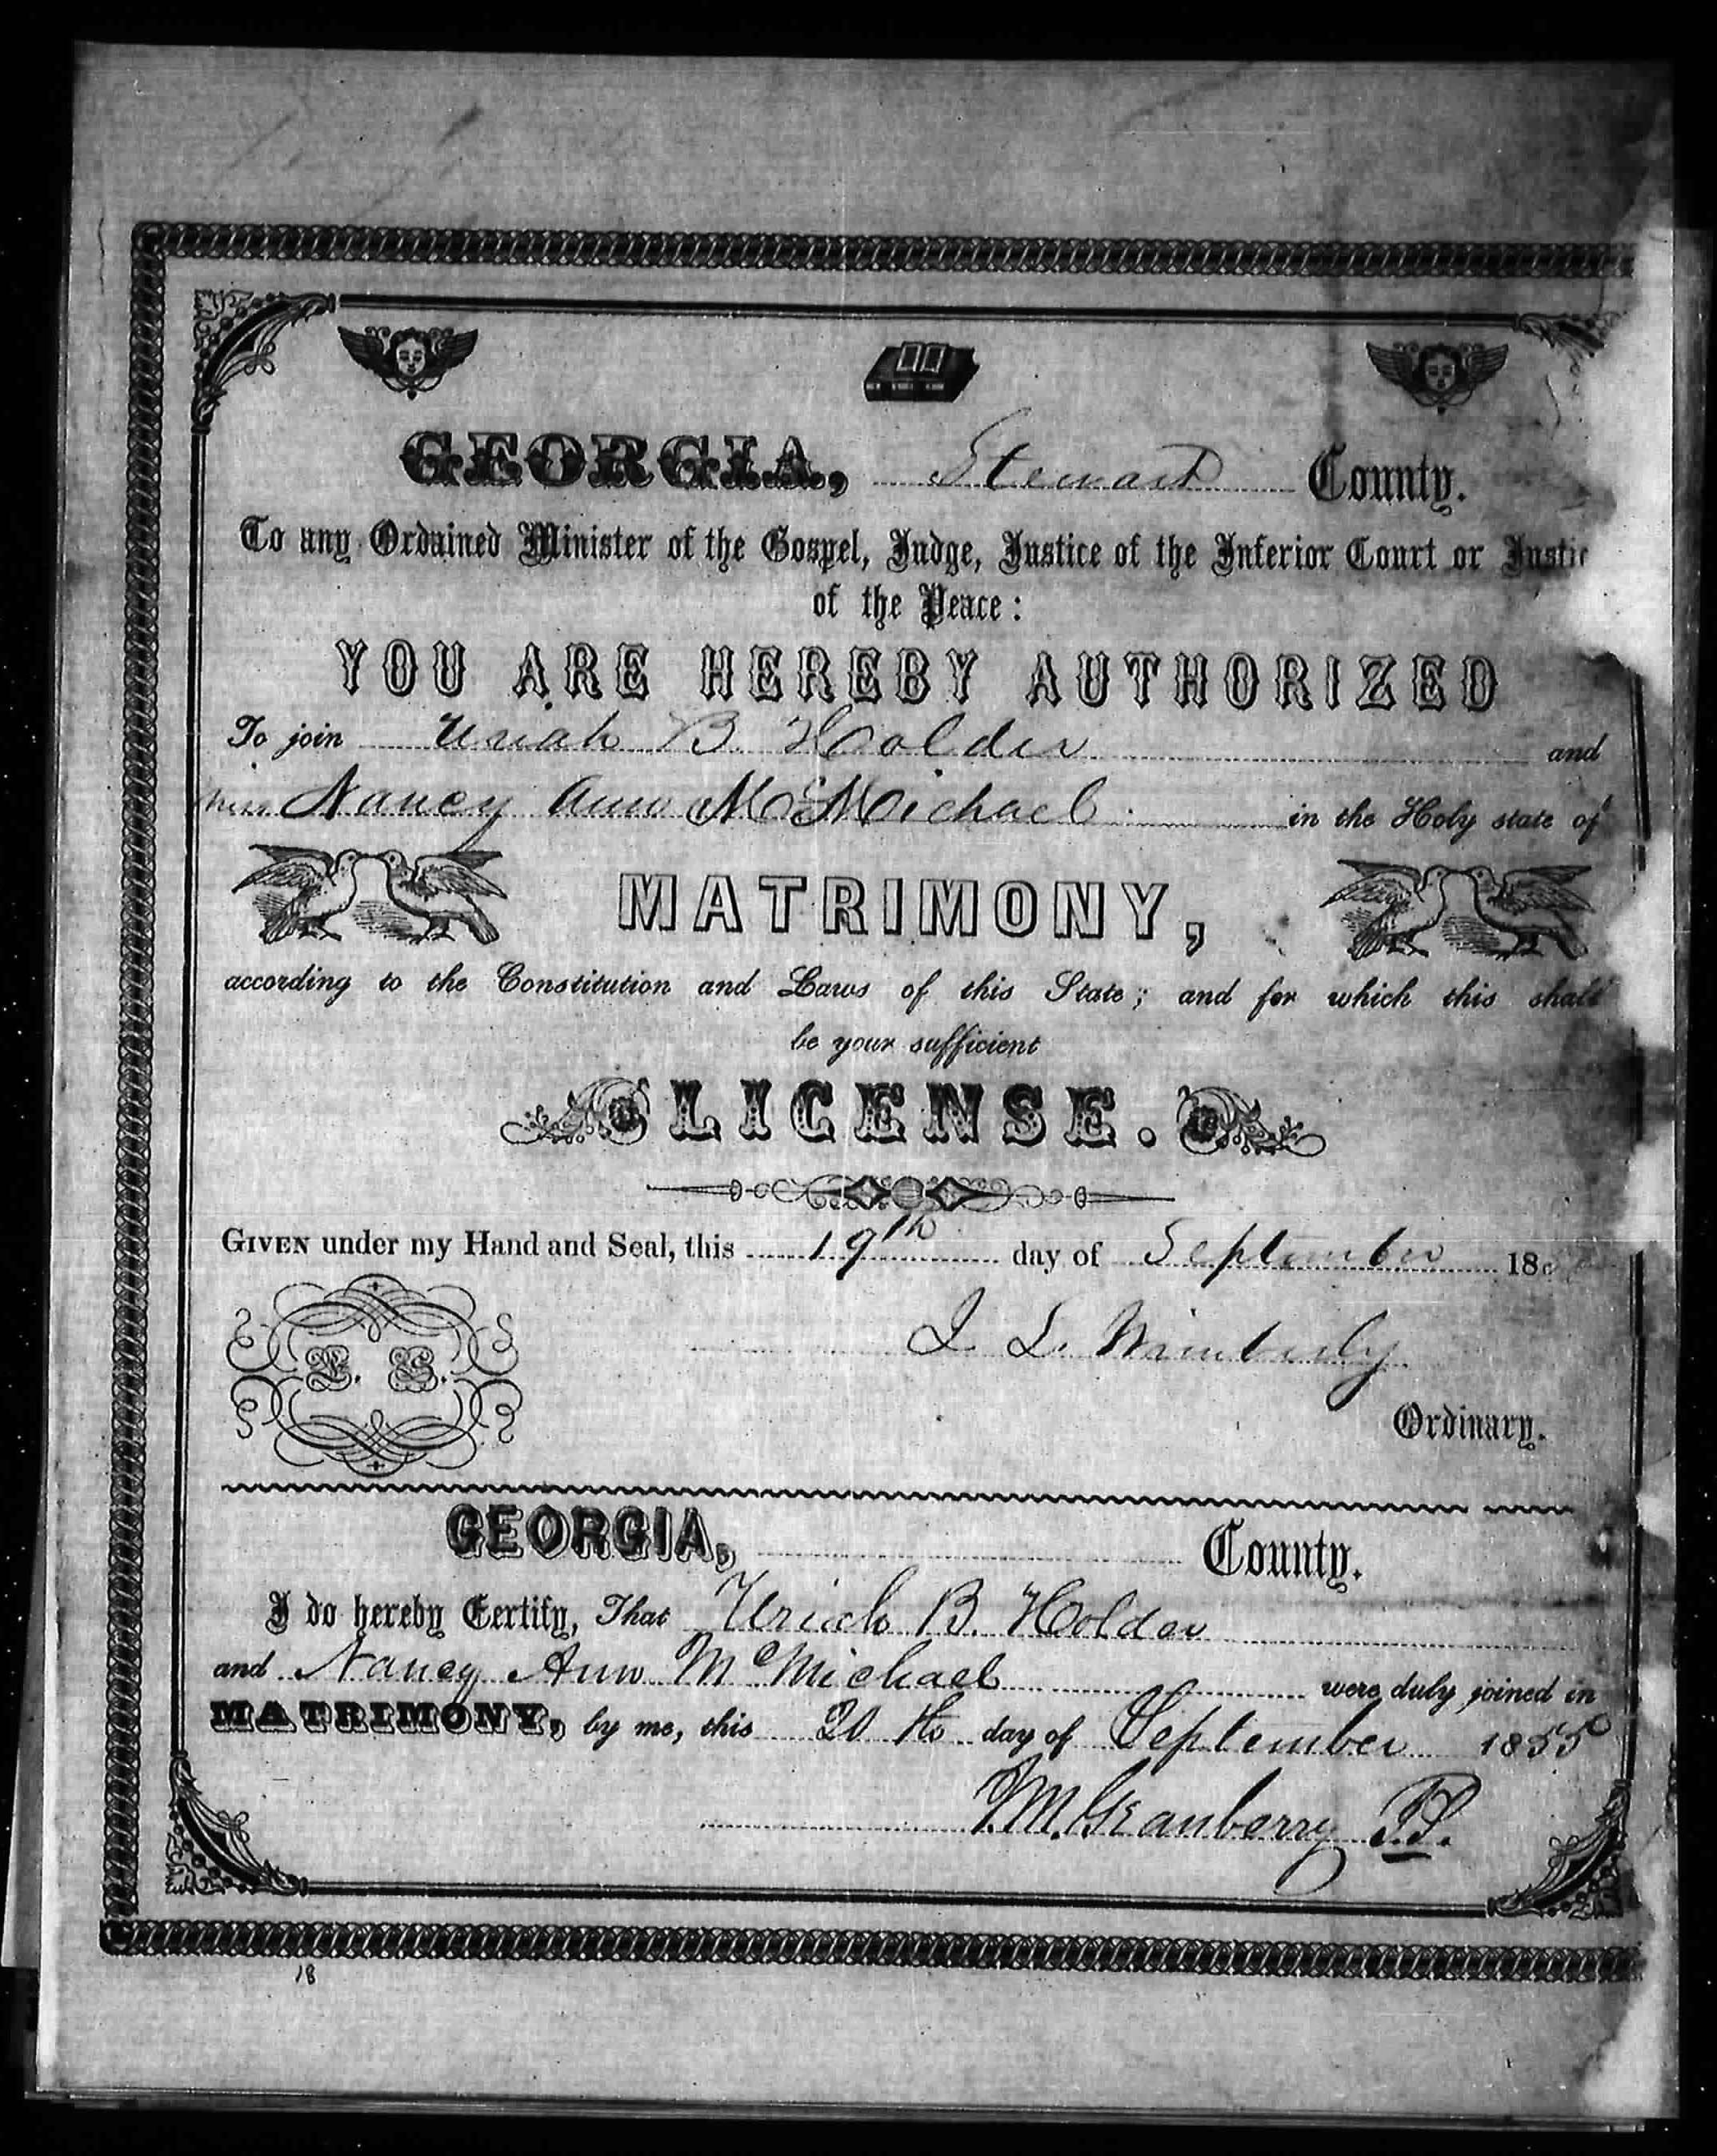 GEORGIA, Stewart County.
To any Ordained Minister of the Gospel, Judge, Justice of the Inferior Court or Justic
of the Peace:
YOU ARE HEREBY AUTHORIZED
To join Uriah B. Holder and
Miss Nancy Ann McMichael in the Holy state of
MATRIMONY,
according to the Constitution and Laws of this State; and for which this shall
be your sufficient
LICENSE.
GIVEN under my Hand and Seal, this 19th day of September 18
J L. Wimberly
L. S.
Ordinary.
GEORGIA, County.
I do hereby Certify, That Uriah B. Holder
and Nancy Ann McMichael were duly joined in
MATRIMONY, by me, this 20th day of September 1855
J.M. Granberry J.P.
18